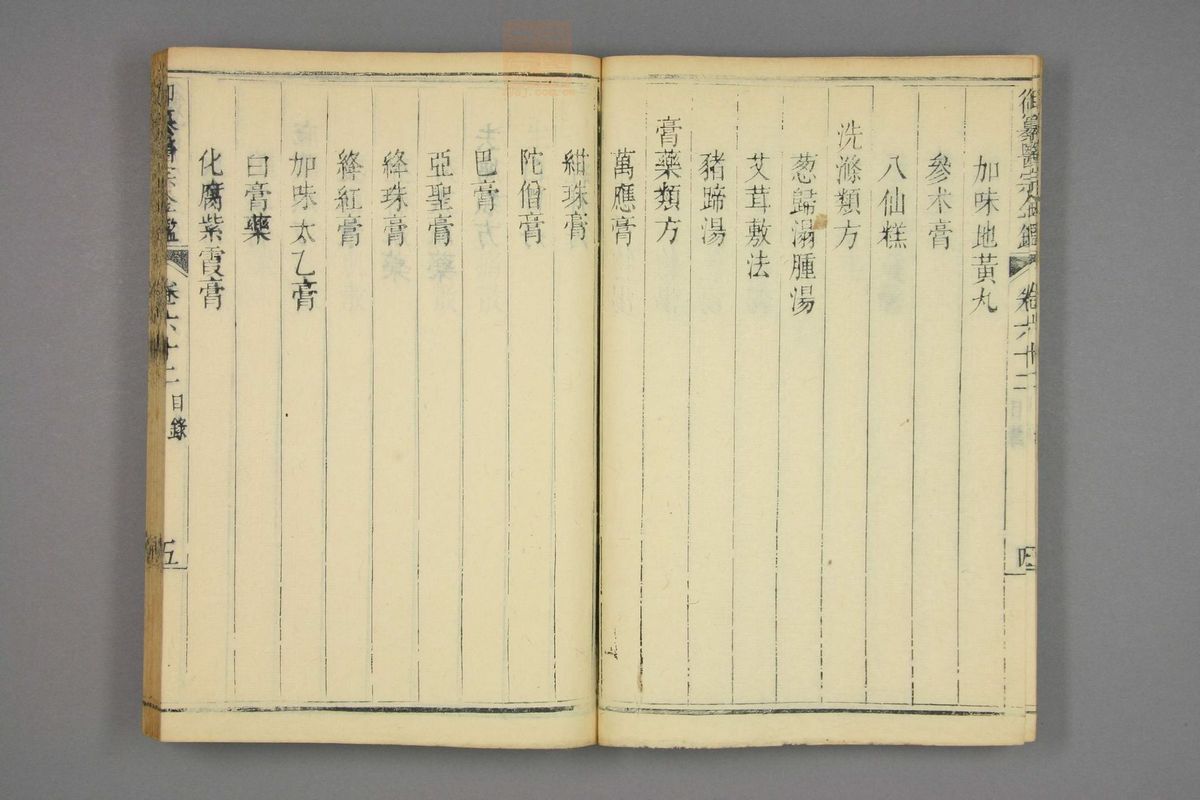 御纂醫宗金鑑 卷六十二 四
加味地黃丸
參术膏
八仙糕
洗滌類方
葱歸溻腫湯
艾茸敷法
豬蹄湯
膏藥類方
萬應膏
紺珠膏
陀僧膏
巴膏
亞聖膏
絳珠膏
絳紅膏
加味太乙膏
白膏藥
化腐紫霞膏
御纂醫宗金鑑 卷六十二 目錄 五